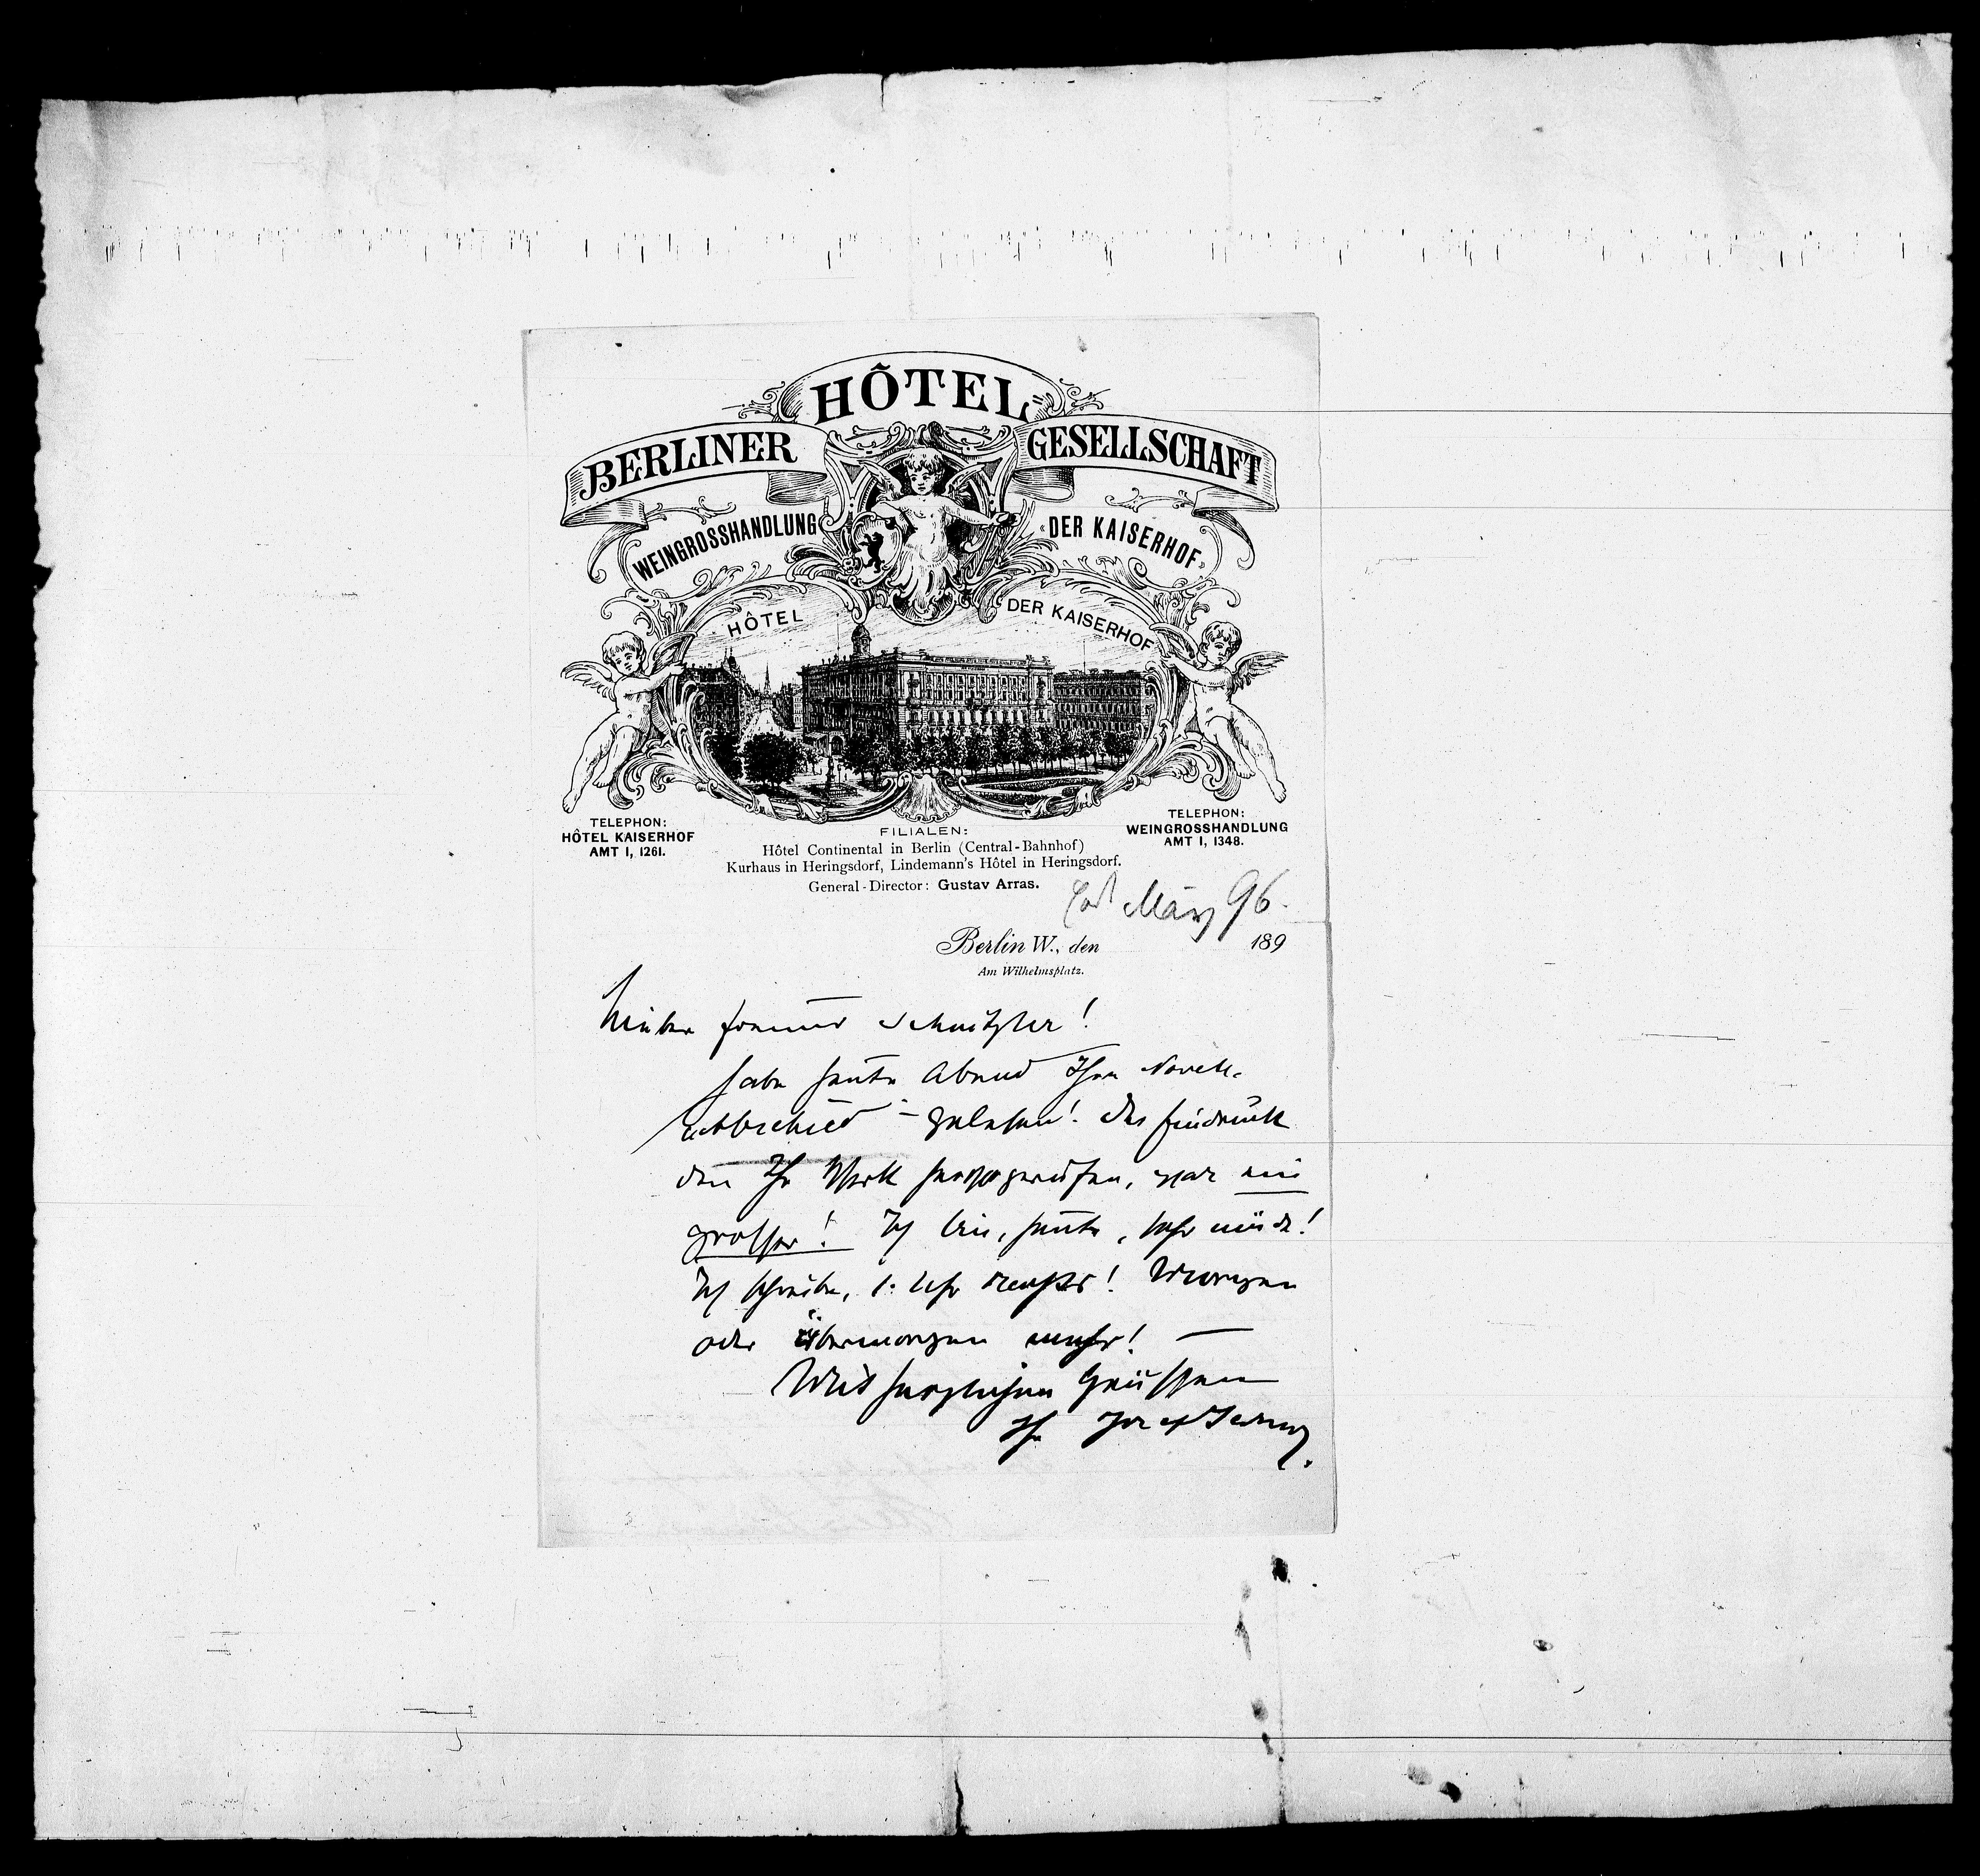 HÔTEL=
BERLINER GESELLSCHAFT
WEINGROSSHANDLUNG «DER KAISERHOF»
HÔTEL DER KAISERHOF
TELEPHON:
HÔTEL KAISERHOF
AMT I, 1261.
TELEPHON:
WEINGROSSHANDLUNG
AMT I, 1348.
FILIALEN:
Hôtel Continental in Berlin (Central-Bahnhof)
Kurhaus in Heringsdorf, Lindemann's Hôtel in Heringsdorf.
General-Director: Gustav Arras.
März 96.
Berlin W., den 189
Am Wilhelmsplatz.
Lieber Freund Schnitzler!
Habe heute Abend Ihre Novelle
Abschied – gelesen! Der Eindruck
den Ihr Werk hervorgerufen, war ein
grosser! Ich bin, heute, sehr müde!
Ich schreibe, 1. Uhr Nachts! Morgen
oder übermorgen mehr! —
Mit herzlichen Grüssen
Ihr Josef Jarno.